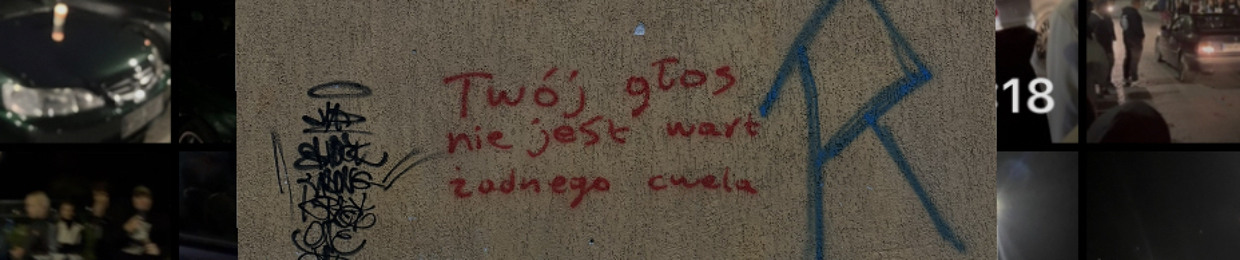 Twój głos
nie jest wart
żadnego cwela
R
:18